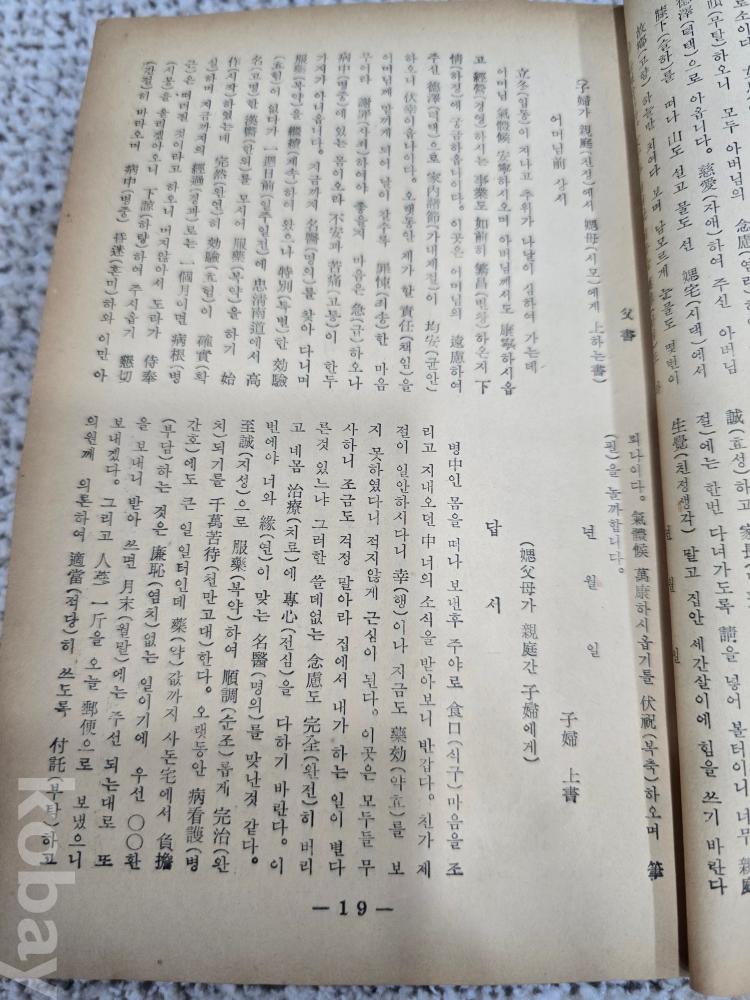 德澤(덕택)으로 아옵니다. 慈愛(자애)하여 주신
膝下(슬하)를 떠나 山도 설고 물도 선 媤宅(시댁)에서
故鄕(고향)하늘만 치여다 보며 남모르게 눈물도 몇번이
誠(효성)하고
절)에는 한번 다녀가도록 請을 넣어 볼터이니 너무 親庭
生覺(친정생각) 말고 집안 세간살이에 힘을 쓰기 바란다
년 월 일
父書
(子婦가 親庭(친정)에서 媤母(시모)에게 上하는書)
어머님前 상서
立冬(입동)이 지나고 추위가 나날이 심하여 가는데
어머님 氣體候 安寧하시오며 아버님께서도 康寧하시옵
고 經營(경영)하시는 事業도 如前히 繁昌(번창)하온지 下
情(하정)에 궁금하옵나이다. 이곳은 어머님의 遠慮하여
주신 德澤(덕택)으로 家內諸節(가내제절)이 均安(균안)
하오니 伏幸이옵나이다. 오랫동안 제가 할 責任(책임)을
어머님께 맡기게 되어 날이 갈수록 罪悚(죄송)한 마음
무어라 謝罪(사죄)하여야 좋을지 마음은 急(급)하오나
病中(병중)에 있는 몸이오라 不安과 苦痛(고통)이 한두
가지가 아니옵니다. 지금까지 名醫(명의)를 찾아 다니며
服藥(복약)을 繼續(계속)하여 왔으나 特別(특별)한 効驗
(효험)이 없다가 一週日前(일주일전)에 忠淸南道에서 高
名(고명)한 漢醫(한의)를 모시어 服藥(복약)을 하기 始
作(시작)하였는데 完然(완연)히 効驗(효험)이 確實(확
실)하며 지금까지의 經過(경과)로는 一個月이면 病根(병
근)은 떠러질 것이라고 하오니 머지않아서 도라가 侍奉
(시봉)을 올리겠아오니 下諒(하량)하여 주시옵기 懇切
(간절)히 바라오며 病中(병중) 昏迷(혼미)하와 이만 아
뢰나이다. 氣體候 萬康하시옵기를 伏祝(복축)하오며 筆
(필)을 놓까합니다.
년 월 일
子婦 上書
답서
(媤父母가 親庭간 子婦에게)
병中인 몸을 떠나 보낸후 주야로 食口(식구)마음을 조
리고 지내오던 中너의 소식을 받아보니 반갑다. 친가 제
절이 일안하시다니 幸(행)이나 지금도 藥効(약효)를 보
지 못하였다니 적지않게 근심이 된다. 이곳은 모두들 무
사하니 조금도 걱정 말아라 집에서 내가 하는 일이 별다
른것 있느냐 그러한 쓸데없는 念慮도 完全(완전)히 버리
고 네몸 治療(치료)에 專心(전심)을 다하기 바란다. 이
번에야 너와 緣(연)이 맞는 名醫(명의)를 맞난것 같다.
至誠(지성)으로 服藥(복약)하여 順調(순조)롭게 完治(완
치)되기를 千萬苦待(천만고대)한다. 오랫동안 病看護(병
간호)에도 큰 일 일터인데 藥(약)값까지 사돈宅에서 負擔
(부담)하는 것은 廉恥(염치)없는 일이기에 우선 〇〇환
을 보내니 받아 쓰면 月末(월말)에는 주선 되는대로 또
보내겠다. 그리고 人蔘 一斤을 오늘 郵便으로 보냈으니
의원께 의론하여 適當(적당)히 쓰도록 付託(부탁)하고
— 19 —
kobay